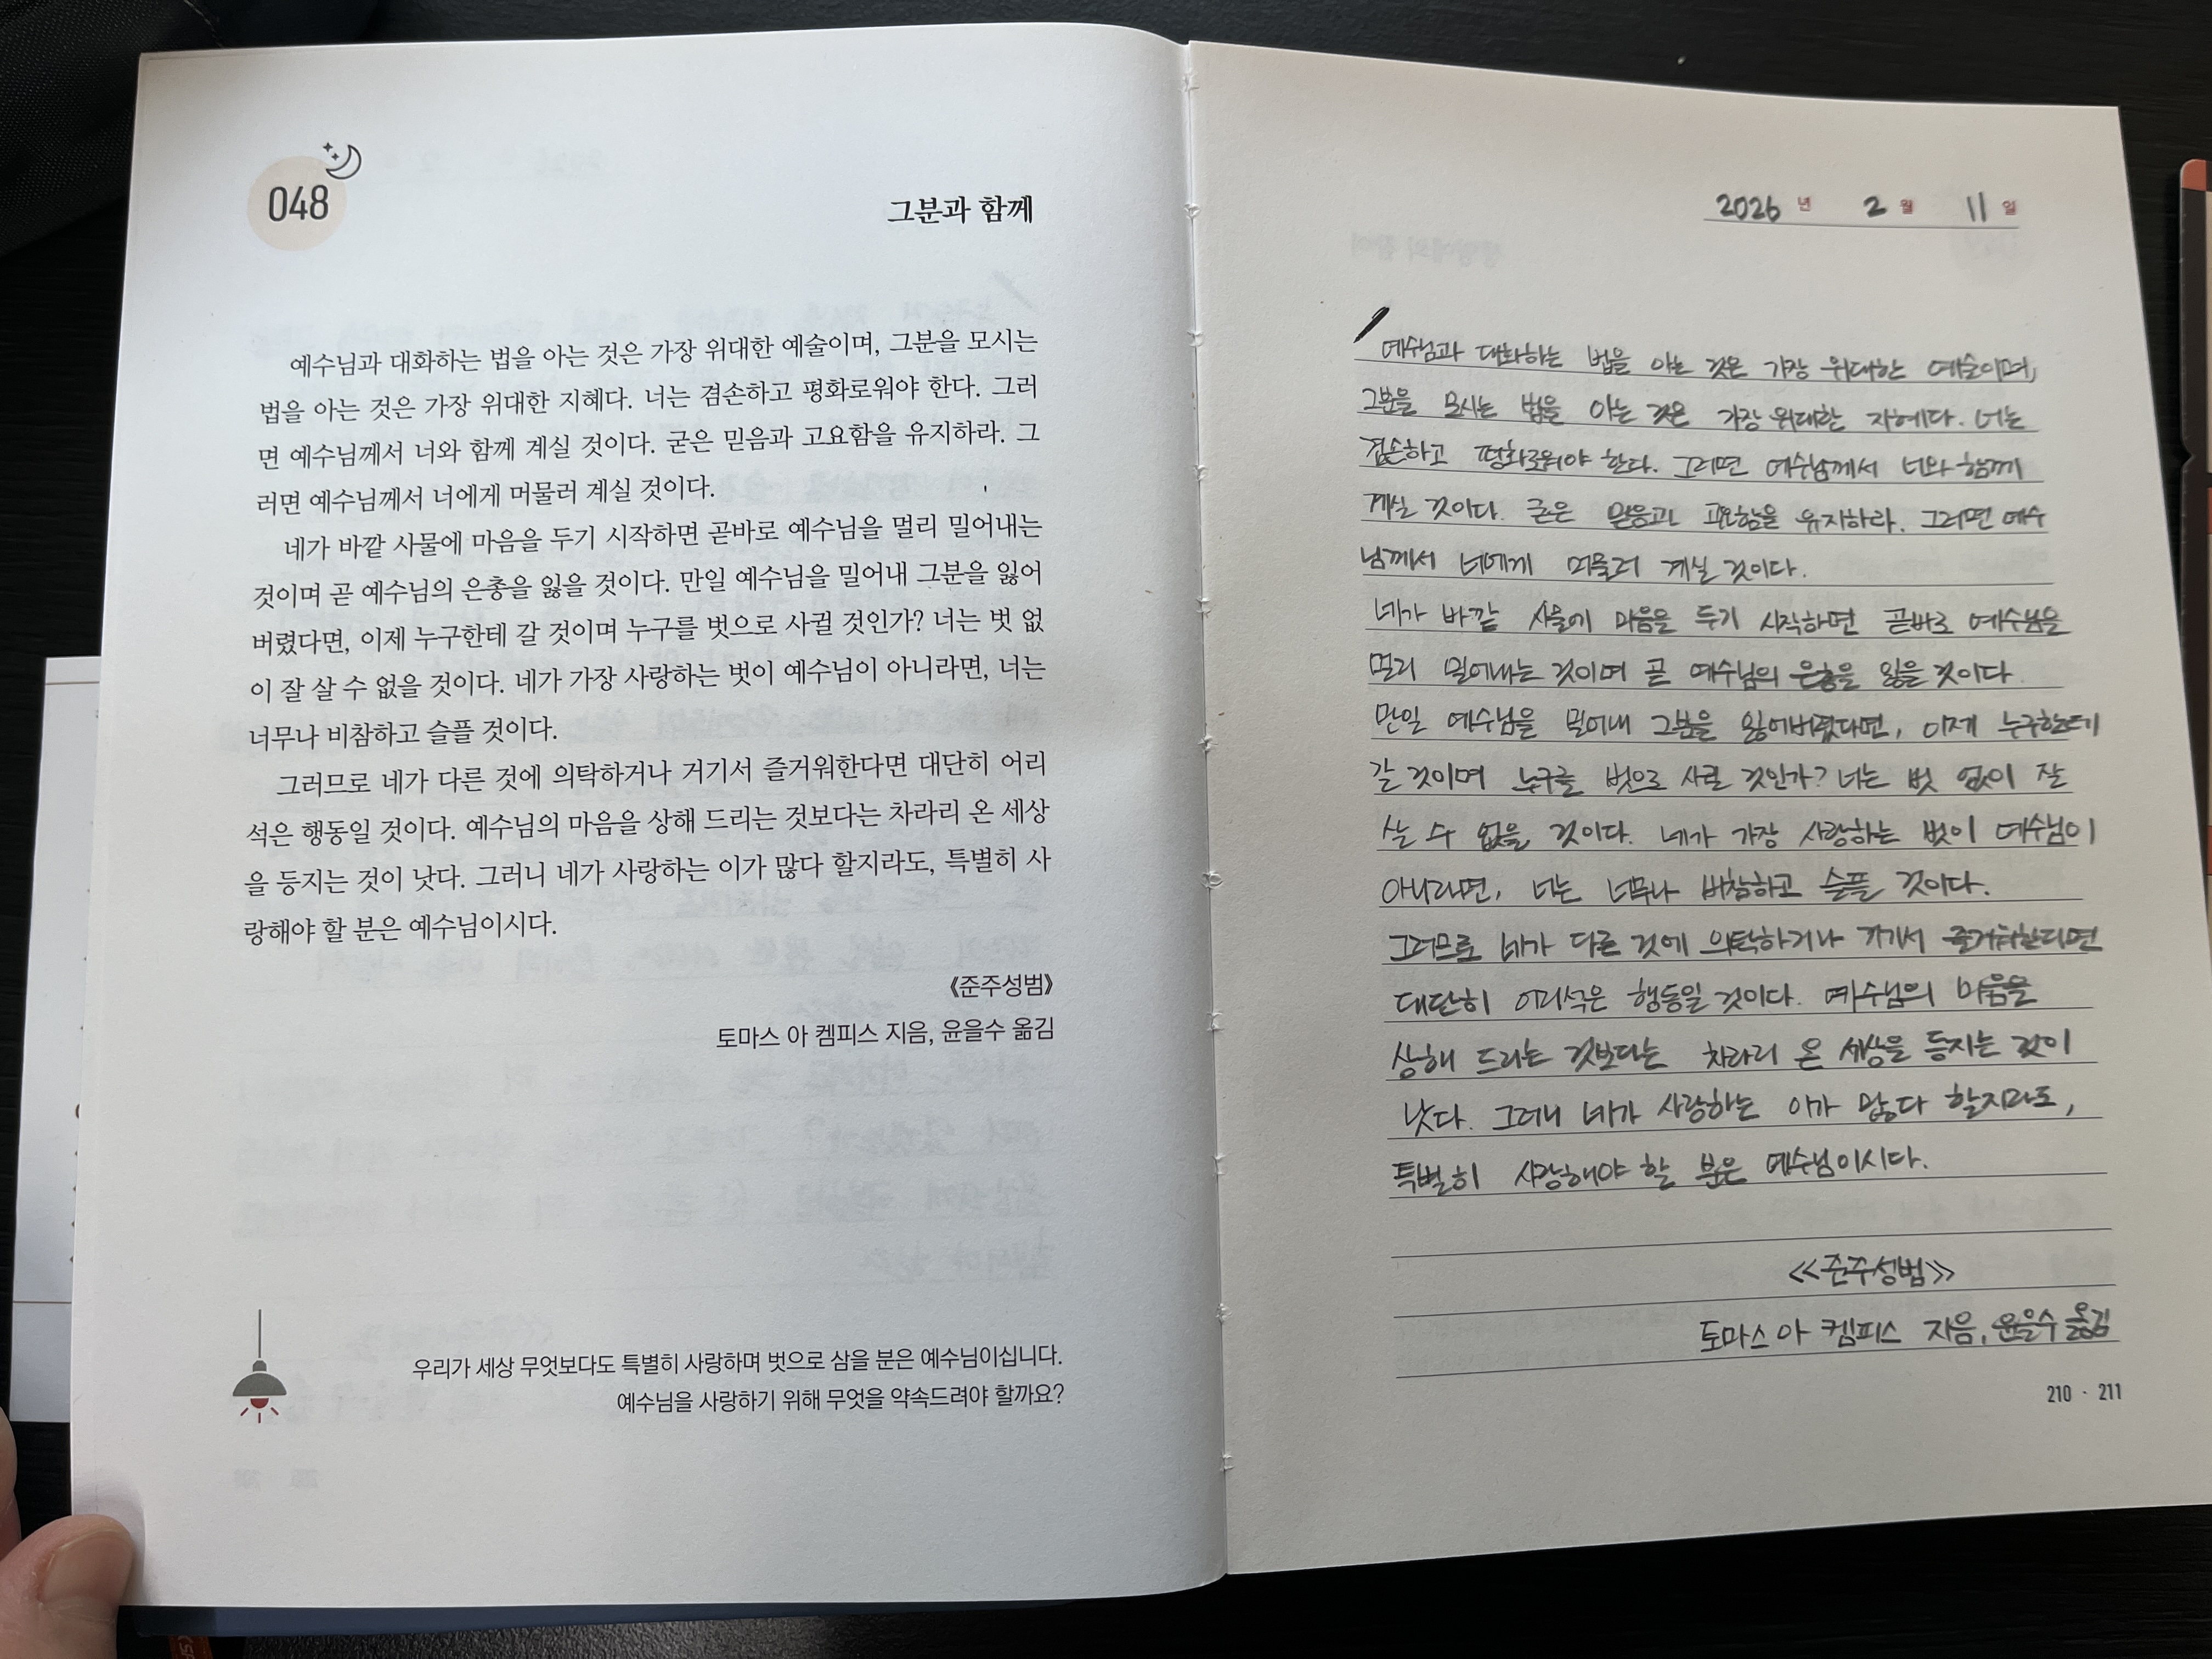 048
그분과 함께
예수님과 대화하는 법을 아는 것은 가장 위대한 예술이며, 그분을 모시는
법을 아는 것은 가장 위대한 지혜다. 너는 겸손하고 평화로워야 한다. 그러
면 예수님께서 너와 함께 계실 것이다. 굳은 믿음과 고요함을 유지하라. 그
러면 예수님께서 너에게 머물러 계실 것이다.
네가 바깥 사물에 마음을 두기 시작하면 곧바로 예수님을 멀리 밀어내는
것이며 곧 예수님의 은총을 잃을 것이다. 만일 예수님을 밀어내 그분을 잃어
버렸다면, 이제 누구한테 갈 것이며 누구를 벗으로 사귈 것인가? 너는 벗 없
이 잘 살 수 없을 것이다. 네가 가장 사랑하는 벗이 예수님이 아니라면, 너는
너무나 비참하고 슬플 것이다.
그러므로 네가 다른 것에 의탁하거나 거기서 즐거워한다면 대단히 어리
석은 행동일 것이다. 예수님의 마음을 상해 드리는 것보다는 차라리 온 세상
을 등지는 것이 낫다. 그러니 네가 사랑하는 이가 많다 할지라도, 특별히 사
랑해야 할 분은 예수님이시다.
《준주성범》
토마스 아 켐피스 지음, 윤을수 옮김
우리가 세상 무엇보다도 특별히 사랑하며 벗으로 삼을 분은 예수님이십니다.
예수님을 사랑하기 위해 무엇을 약속드려야 할까요?
2026 년 2 월 11 일
예수님과 대화하는 법을 아는 것은 가장 위대한 예술이며,
그분을 모시는 법을 아는 것은 가장 위대한 지혜다. 너는
겸손하고 평화로워야 한다. 그러면 예수님께서 너와 함께
계실 것이다. 굳은 믿음과 고요함을 유지하라. 그러면 예수
님께서 너에게 머물러 계실 것이다.
네가 바깥 사물에 마음을 두기 시작하면 곧바로 예수님을
멀리 밀어내는 것이며 곧 예수님의 은총을 잃을 것이다.
만일 예수님을 밀어내 그분을 잃어버렸다면, 이제 누구한테
갈 것이며 누구를 벗으로 사귈 것인가? 너는 벗 없이 잘
살 수 없을 것이다. 네가 가장 사랑하는 벗이 예수님이
아니라면, 너는 너무나 비참하고 슬플 것이다.
그러므로 네가 다른 것에 의탁하거나 거기서 즐거워한다면
대단히 어리석은 행동일 것이다. 예수님의 마음을
상해 드리는 것보다는 차라리 온 세상을 등지는 것이
낫다. 그러니 네가 사랑하는 이가 많다 할지라도,
특별히 사랑해야 할 분은 예수님이시다.
<<준주성범>>
토마스 아 켐피스 지음, 윤을수 옮김
210 · 211